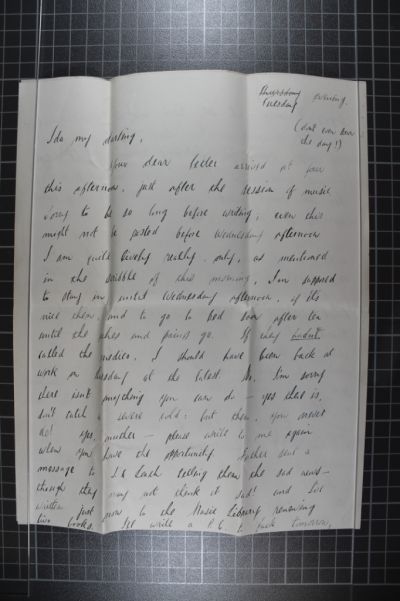 Thursday
Tuesday evening.
(don't even know
the day!)
Ida my darling,
Your dear letter arrived at four
this afternoon, just after the session of music
Sorry to be so long before writing, even this
might not be posted before Wednesday afternoon
I am quite lively really, only, as mentioned
in the scribble of this morning, I'm supposed
to stay in until Wednesday afternoon, if it's
nice then, and to go to bed soon after ten
until the aches and pains go. If they hadn't
called the medico, I should have been back at
work on Tuesday at the latest. No, I'm sorry
there isn't anything you can do — yes there is,
don't catch a severe cold: but then, you never
do! yes, another — please write to me again
when you have the opportunity. Father sent a
message to telling them the sad news —
though they may not think it sad! and I've
written just now to the Music Library renewing
two books. I'll write a P.C. to tomorrow,